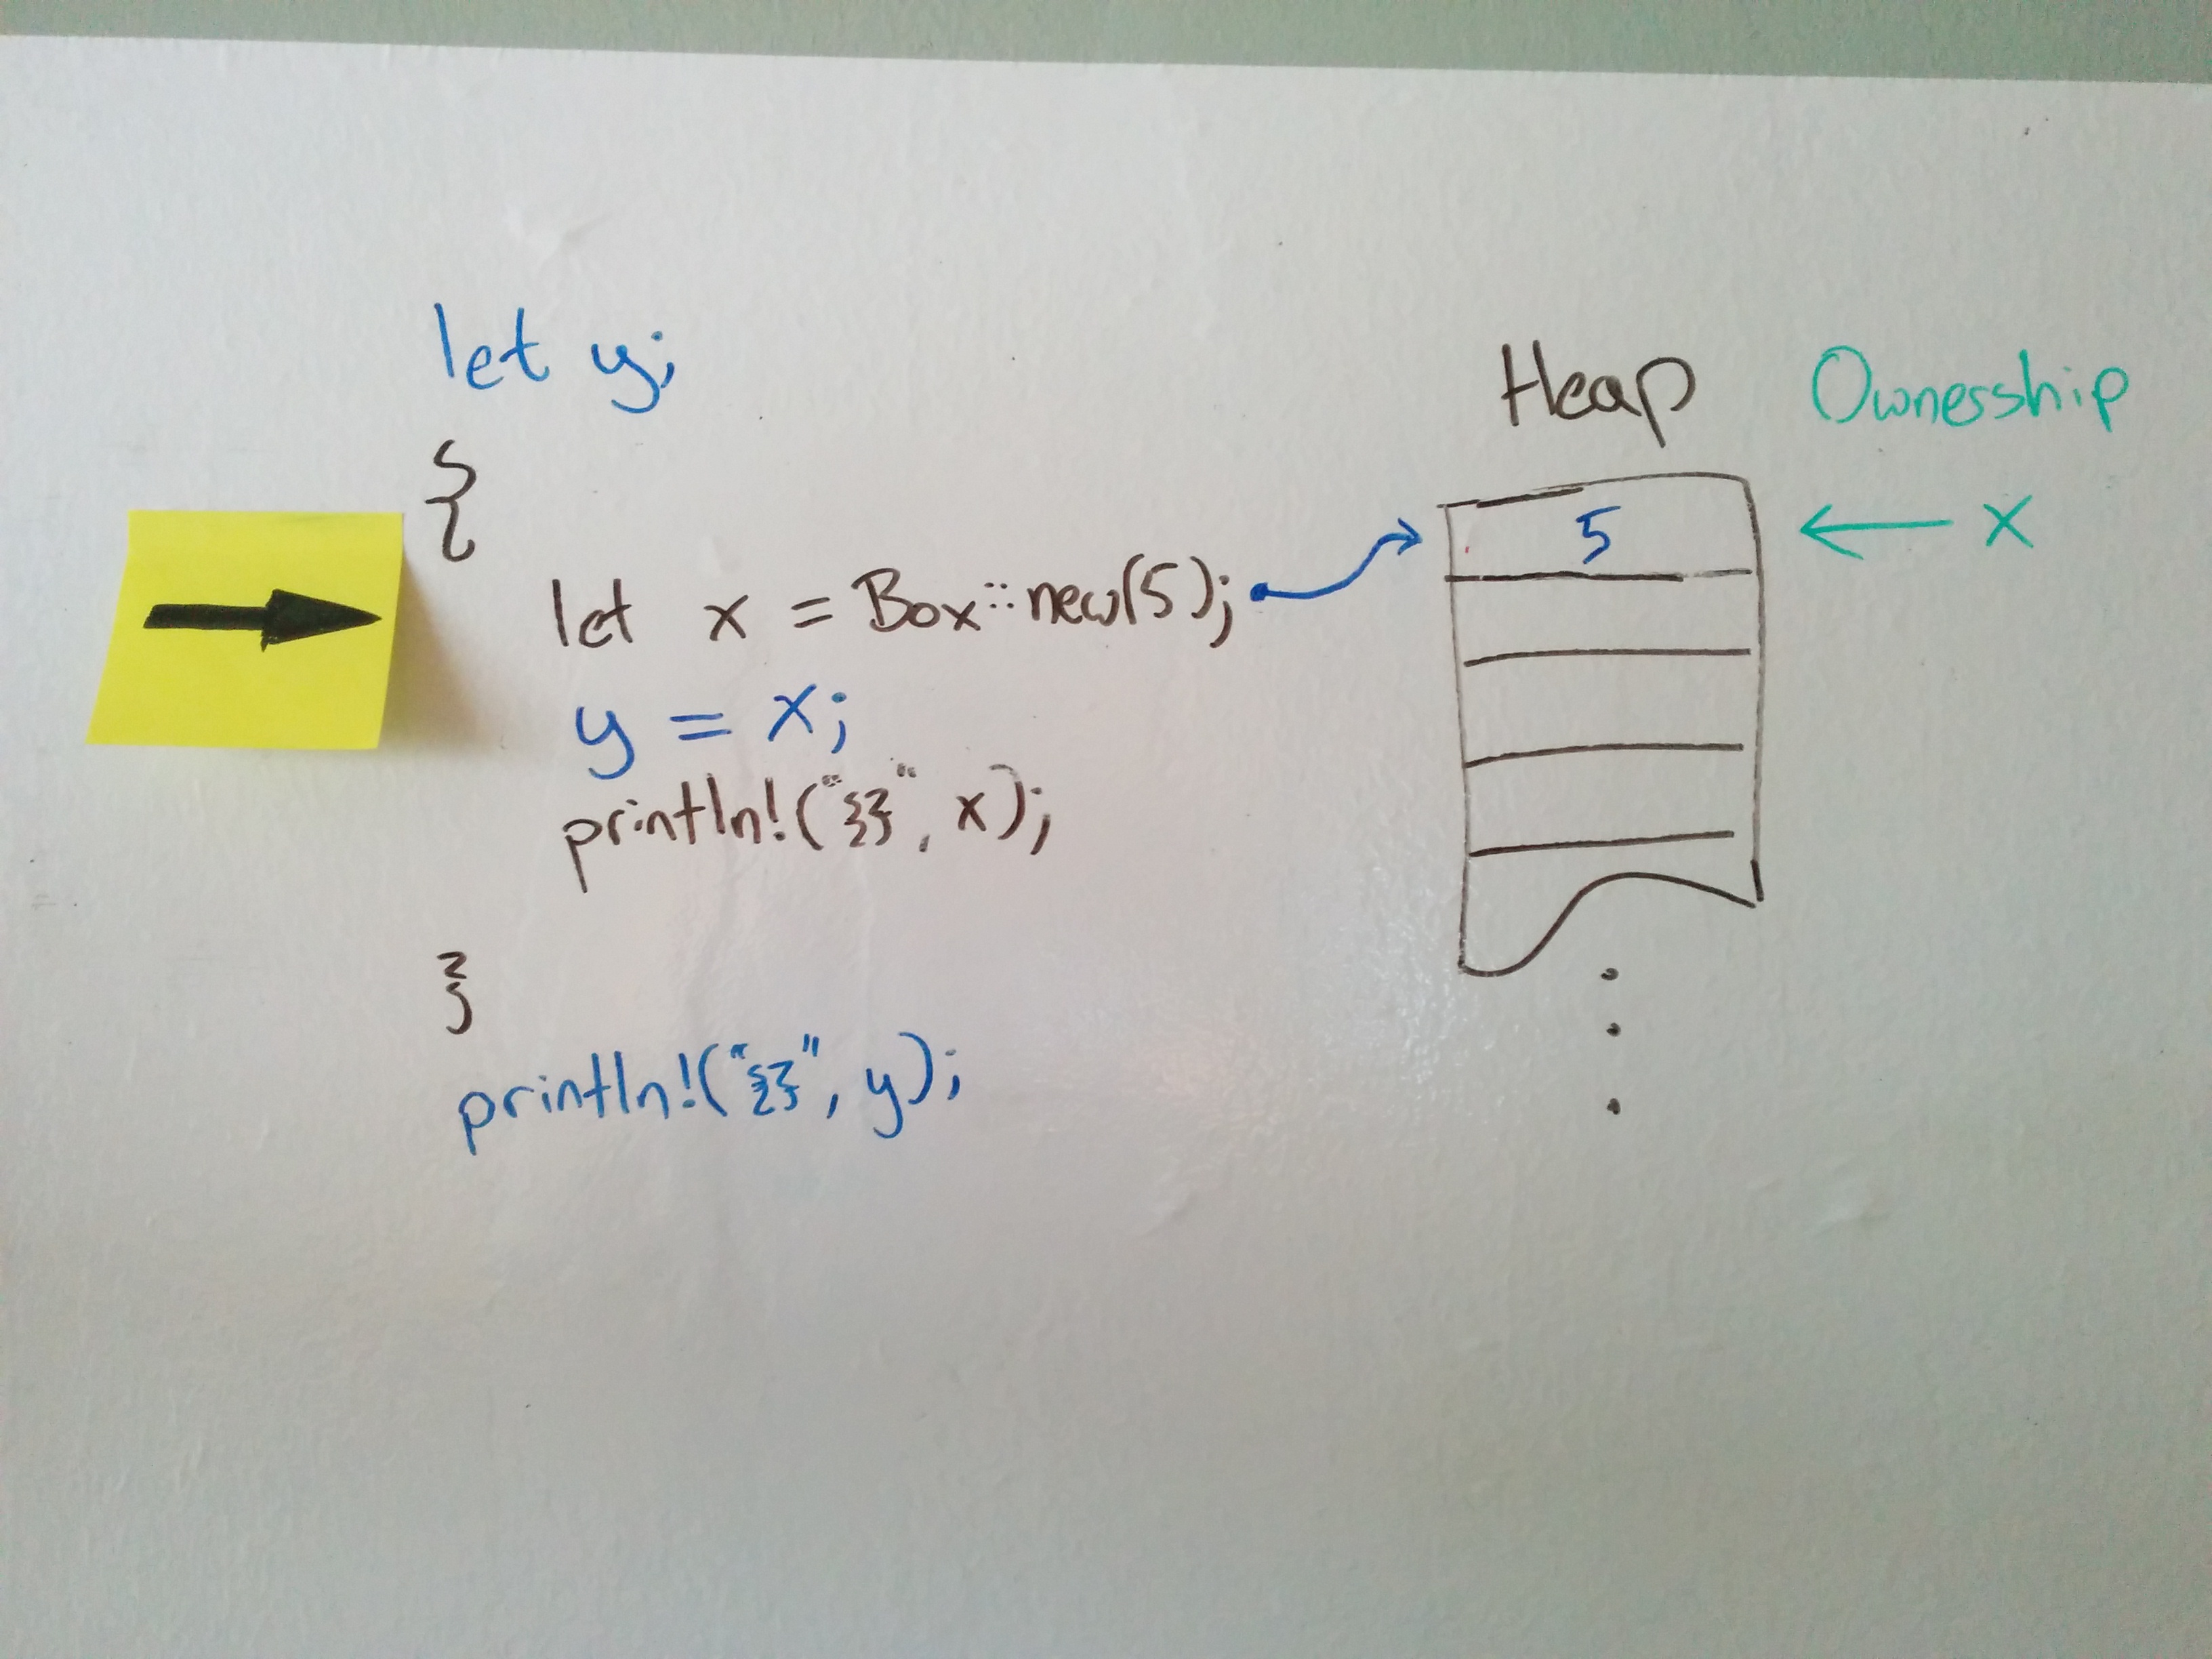 let y;
{
let x = Box::new(5);
y = x;
println!("{}", x);
}
println!("{}", y);
Heap Ownership
5 x